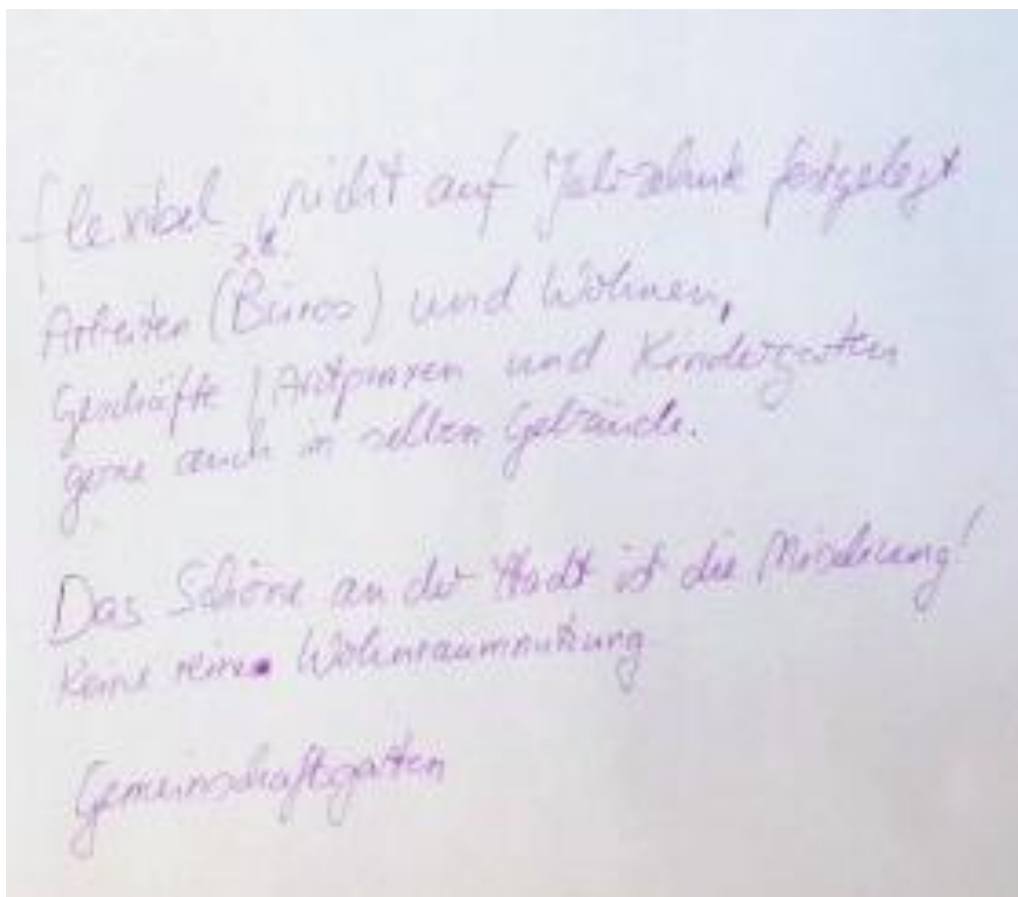 flexibel, nicht auf Jahrzehnte festgelegt
z.B.
Arbeiten (Büros) und Wohnen,
Geschäfte / Arztpraxen und Kindergarten
gerne auch in selben Gebäude.
Das Schöne an der Stadt ist die Mischung!
Keine reine Wohnraumnutzung
Gemeinschaftsgarten